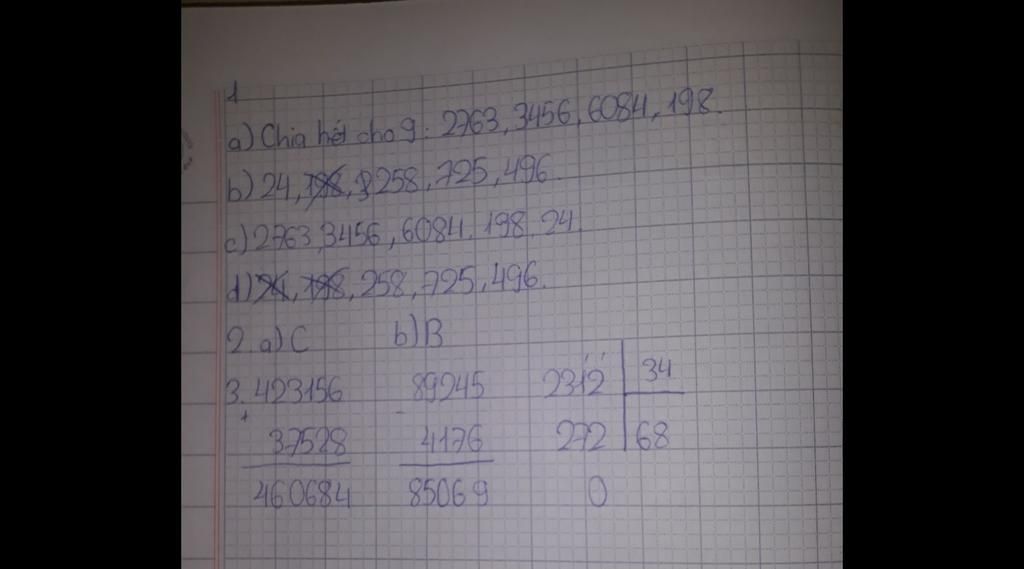 1
a) Chia hết cho 9: 2763, 3456, 6084, 198.
b) 24, 198, 3258, 725, 496.
c) 2763, 3456, 6084, 198, 24.
d) 24, 198, 258, 725, 496.
2. a) C b) B
3. 423156 89245 2312 34
+ - 
37528 4176 272 68
460684 85069 0